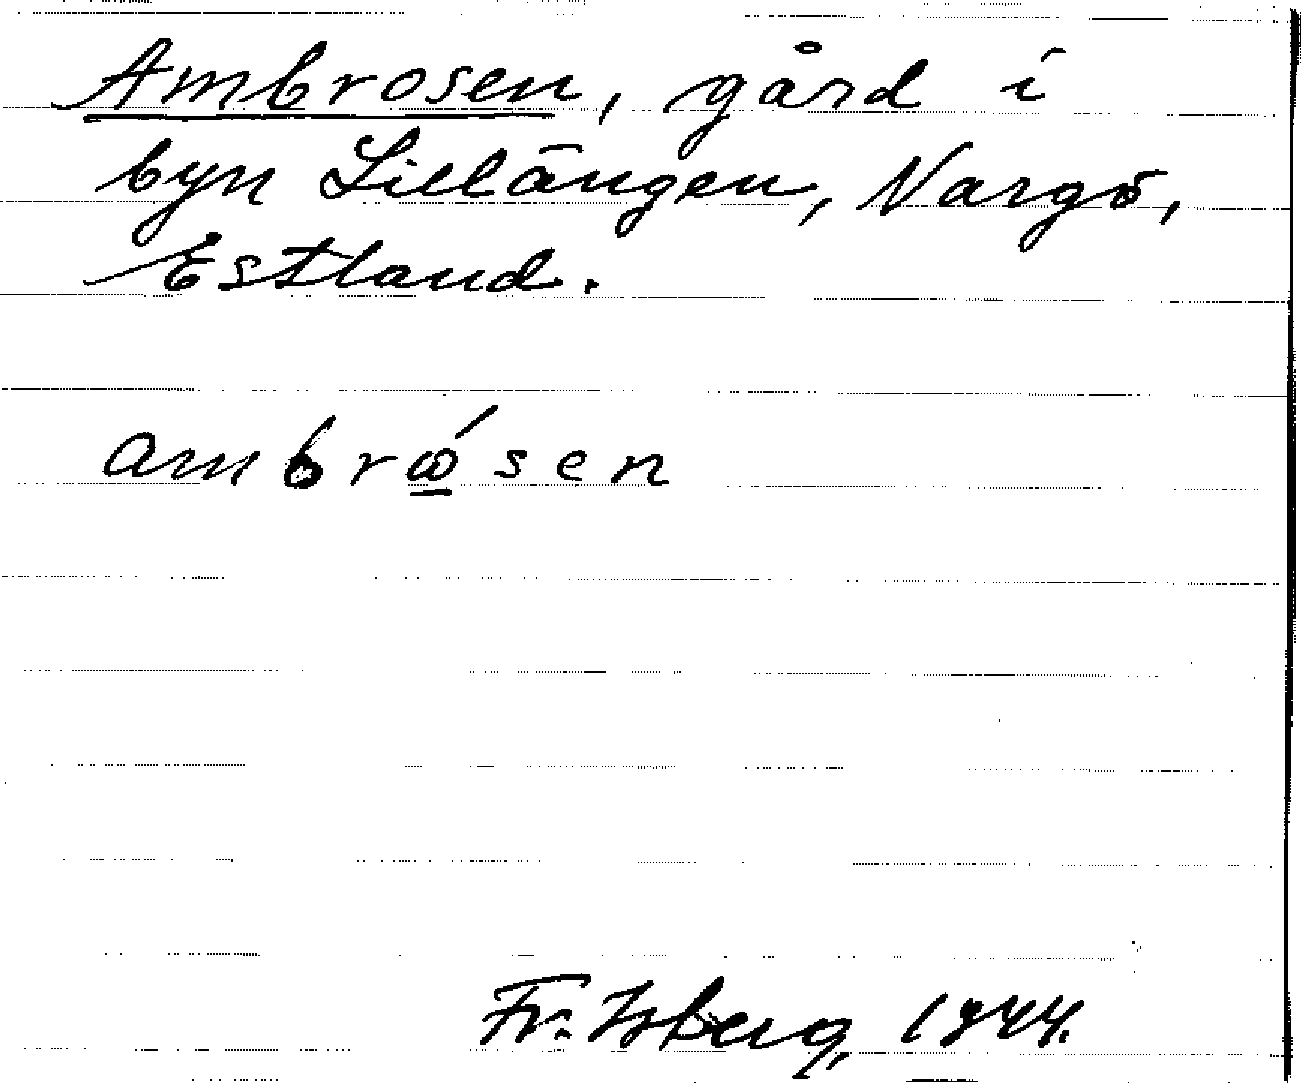 Ambrosen, gård i
byn Lillängen, Nargö,
Estland.
ambrώ̲sen
Fr. Isberg, 1944.